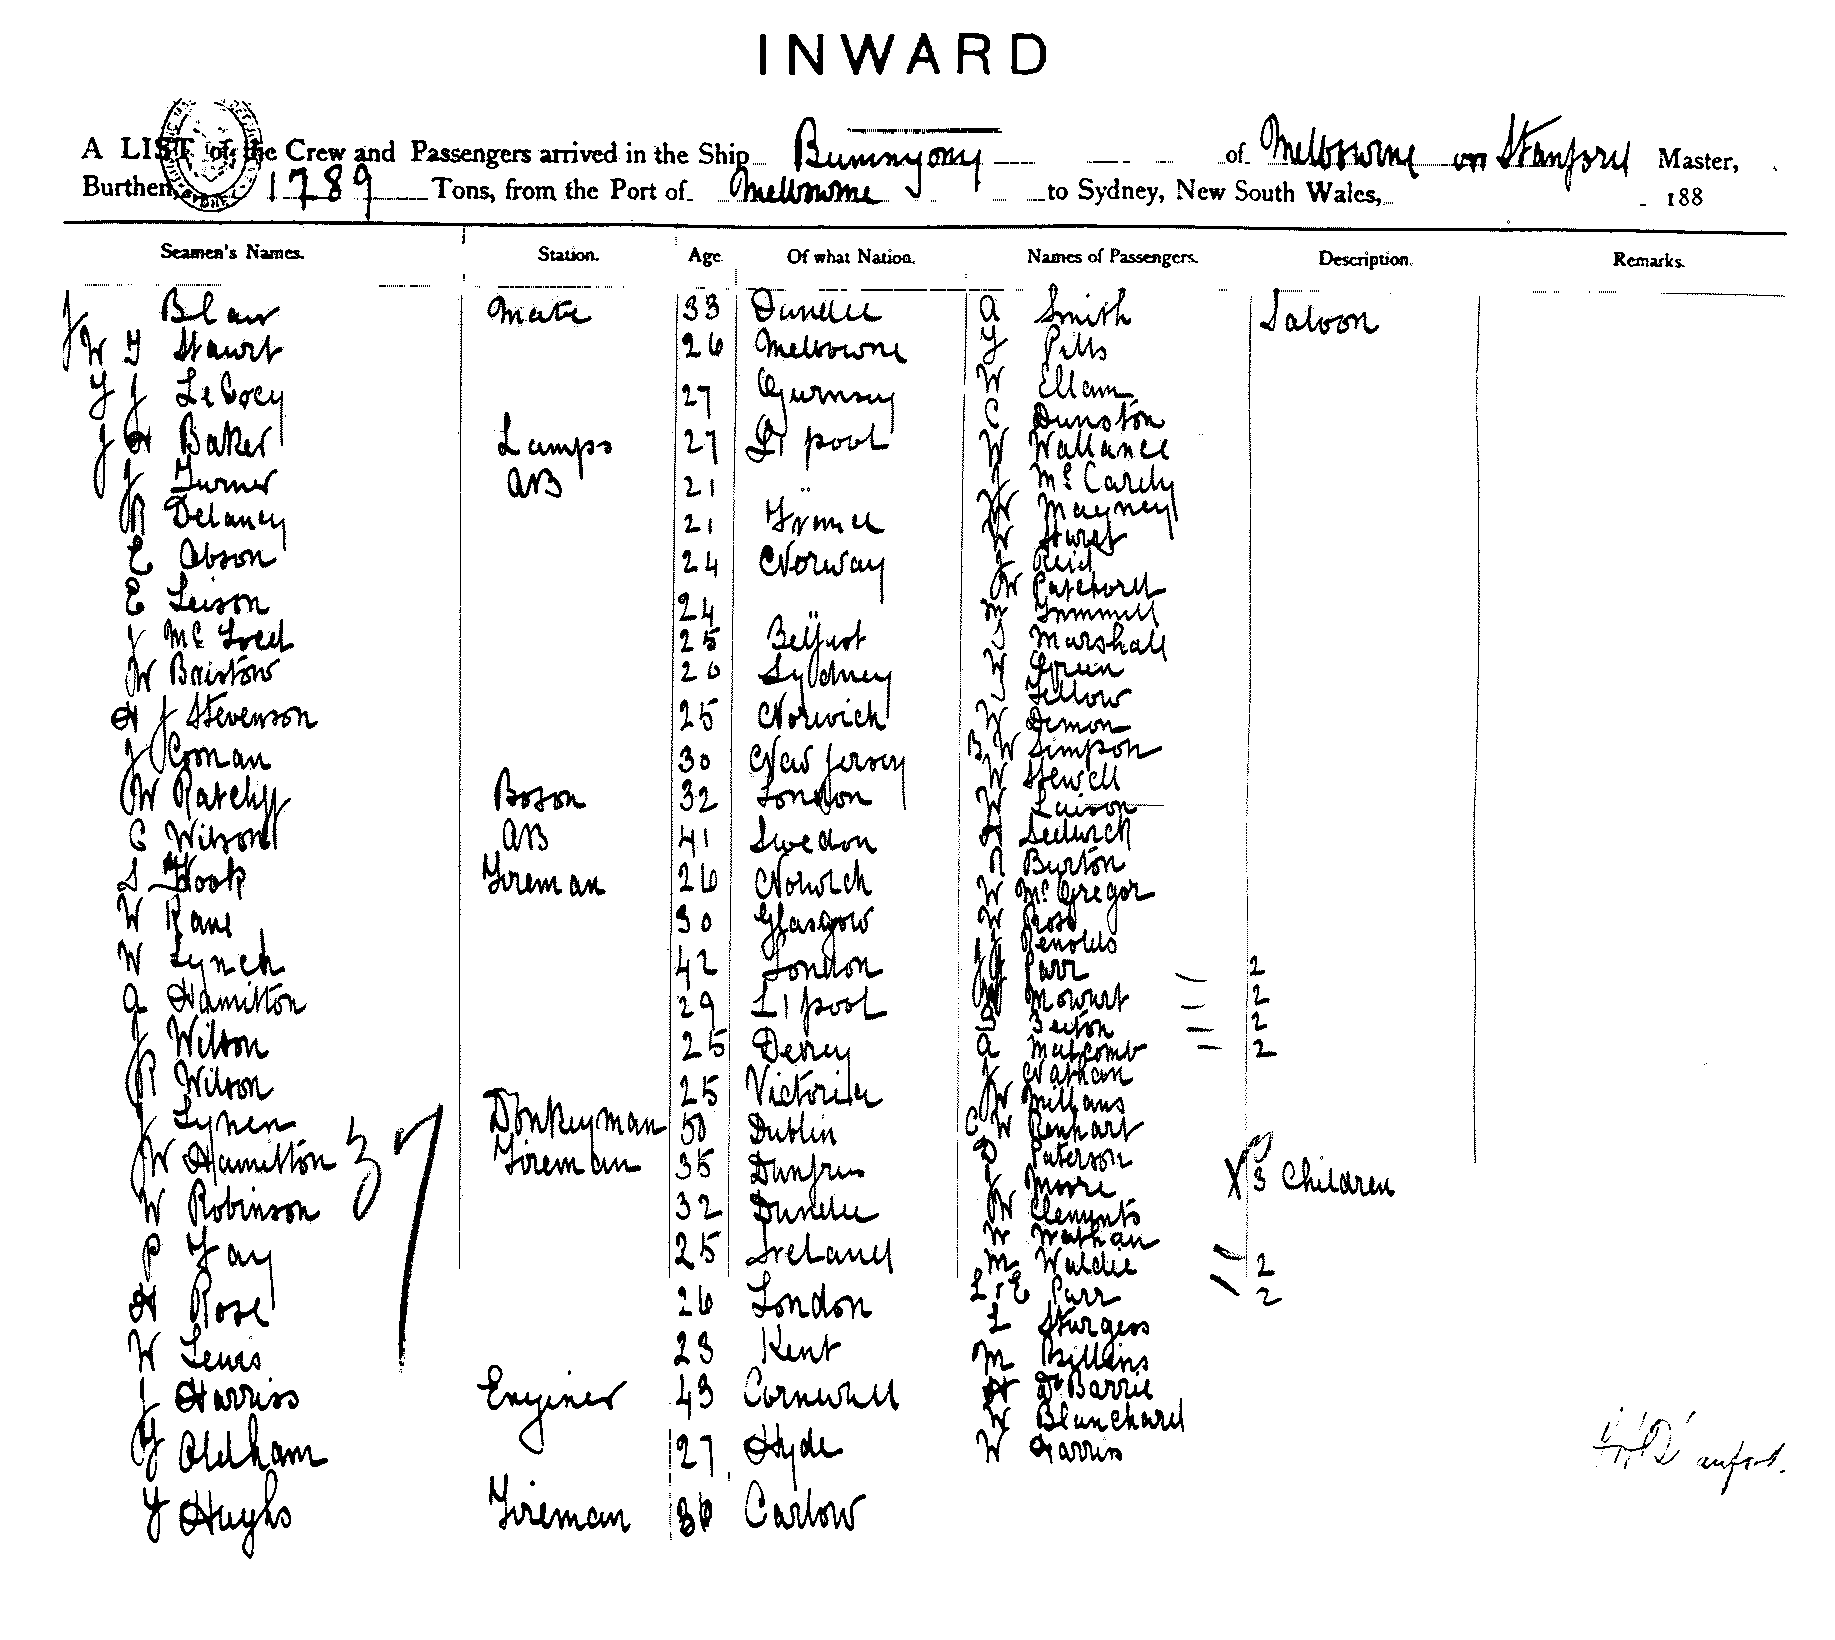 INWARD
A LIST of the Crew and Passengers arrived in the Ship Bunnyong of Melbourne Stanford Master,
Burthen, 1789 Tons, from the Port of Melbourne to Sydney, New South Wales, 188
Seamen's Names. Station. Age Of what Nation. Names of Passengers. Description. Remarks.
J Blair Mate 33 Dundee A Smith Saloon
W J Stawrt 26 Melbourne J Pitts
27 Gurnsey W Ellam
C Dunston
J H Baker Lamps 27 L'pool W Wallance
J Turner AB 21 " J McCardy
R Delaney 21 France W Mayney
W Hurst
E Obson 24 Norway J Reid
W
E Leison 24 " M
J 25 Belfast J Marshall
W Bristow 20 Sydney W Green
J Fellow
H J Stevenson 25 Norwich W Demon
J Conan 30 New Jersey B W Simpson
W Stewell
W Ratcliff Boson 32 London W Laison
C Wilson AB 41 Swedon H Sedwick
R Burton
S Hook Fireman 26 Norwich W McGregor
W Rane 30 Glasgow W Rose
J Renolds
W Lynch 42 London Parr 2
A Hamilton 29 L'pool Mowart 2
Sexton 2
J Wilson 25 Derrey A Malcomb 2
J Nathan
R Wilson 25 Victoria W Millans
J Lynen Donkeyman 50 Dublin C W Renhart
W Hamilton 37 Fireman 35 Dunfres D Paterson
J Moore X 3 Children
W Robinson 32 Dundee W Clemnts
W Wathan
P Fay 25 Ireland M Waldie 2
H Rose 26 London L & E Parr 2
L Sturgess
W Lewis 23 Kent M Billins
J Harriss Enginer 43 Cornwall H Dr Barrie
W Blanchard
J Oldham 27 Hyde W Harris
J Hughs Fireman 36 Carlow